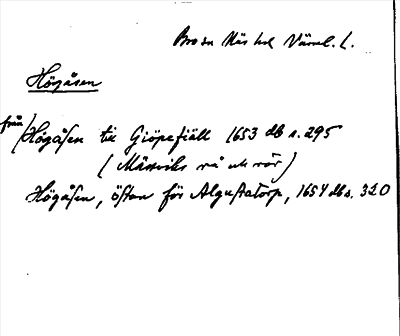 Bro sn Näs hd Värml. l.
Högåsen
från) Högåsen till Giöpefiäll 1653 db s. 295
(Mässviks rå och rör)
Högåsen, östan för Algustatorp, 1654 db s. 320